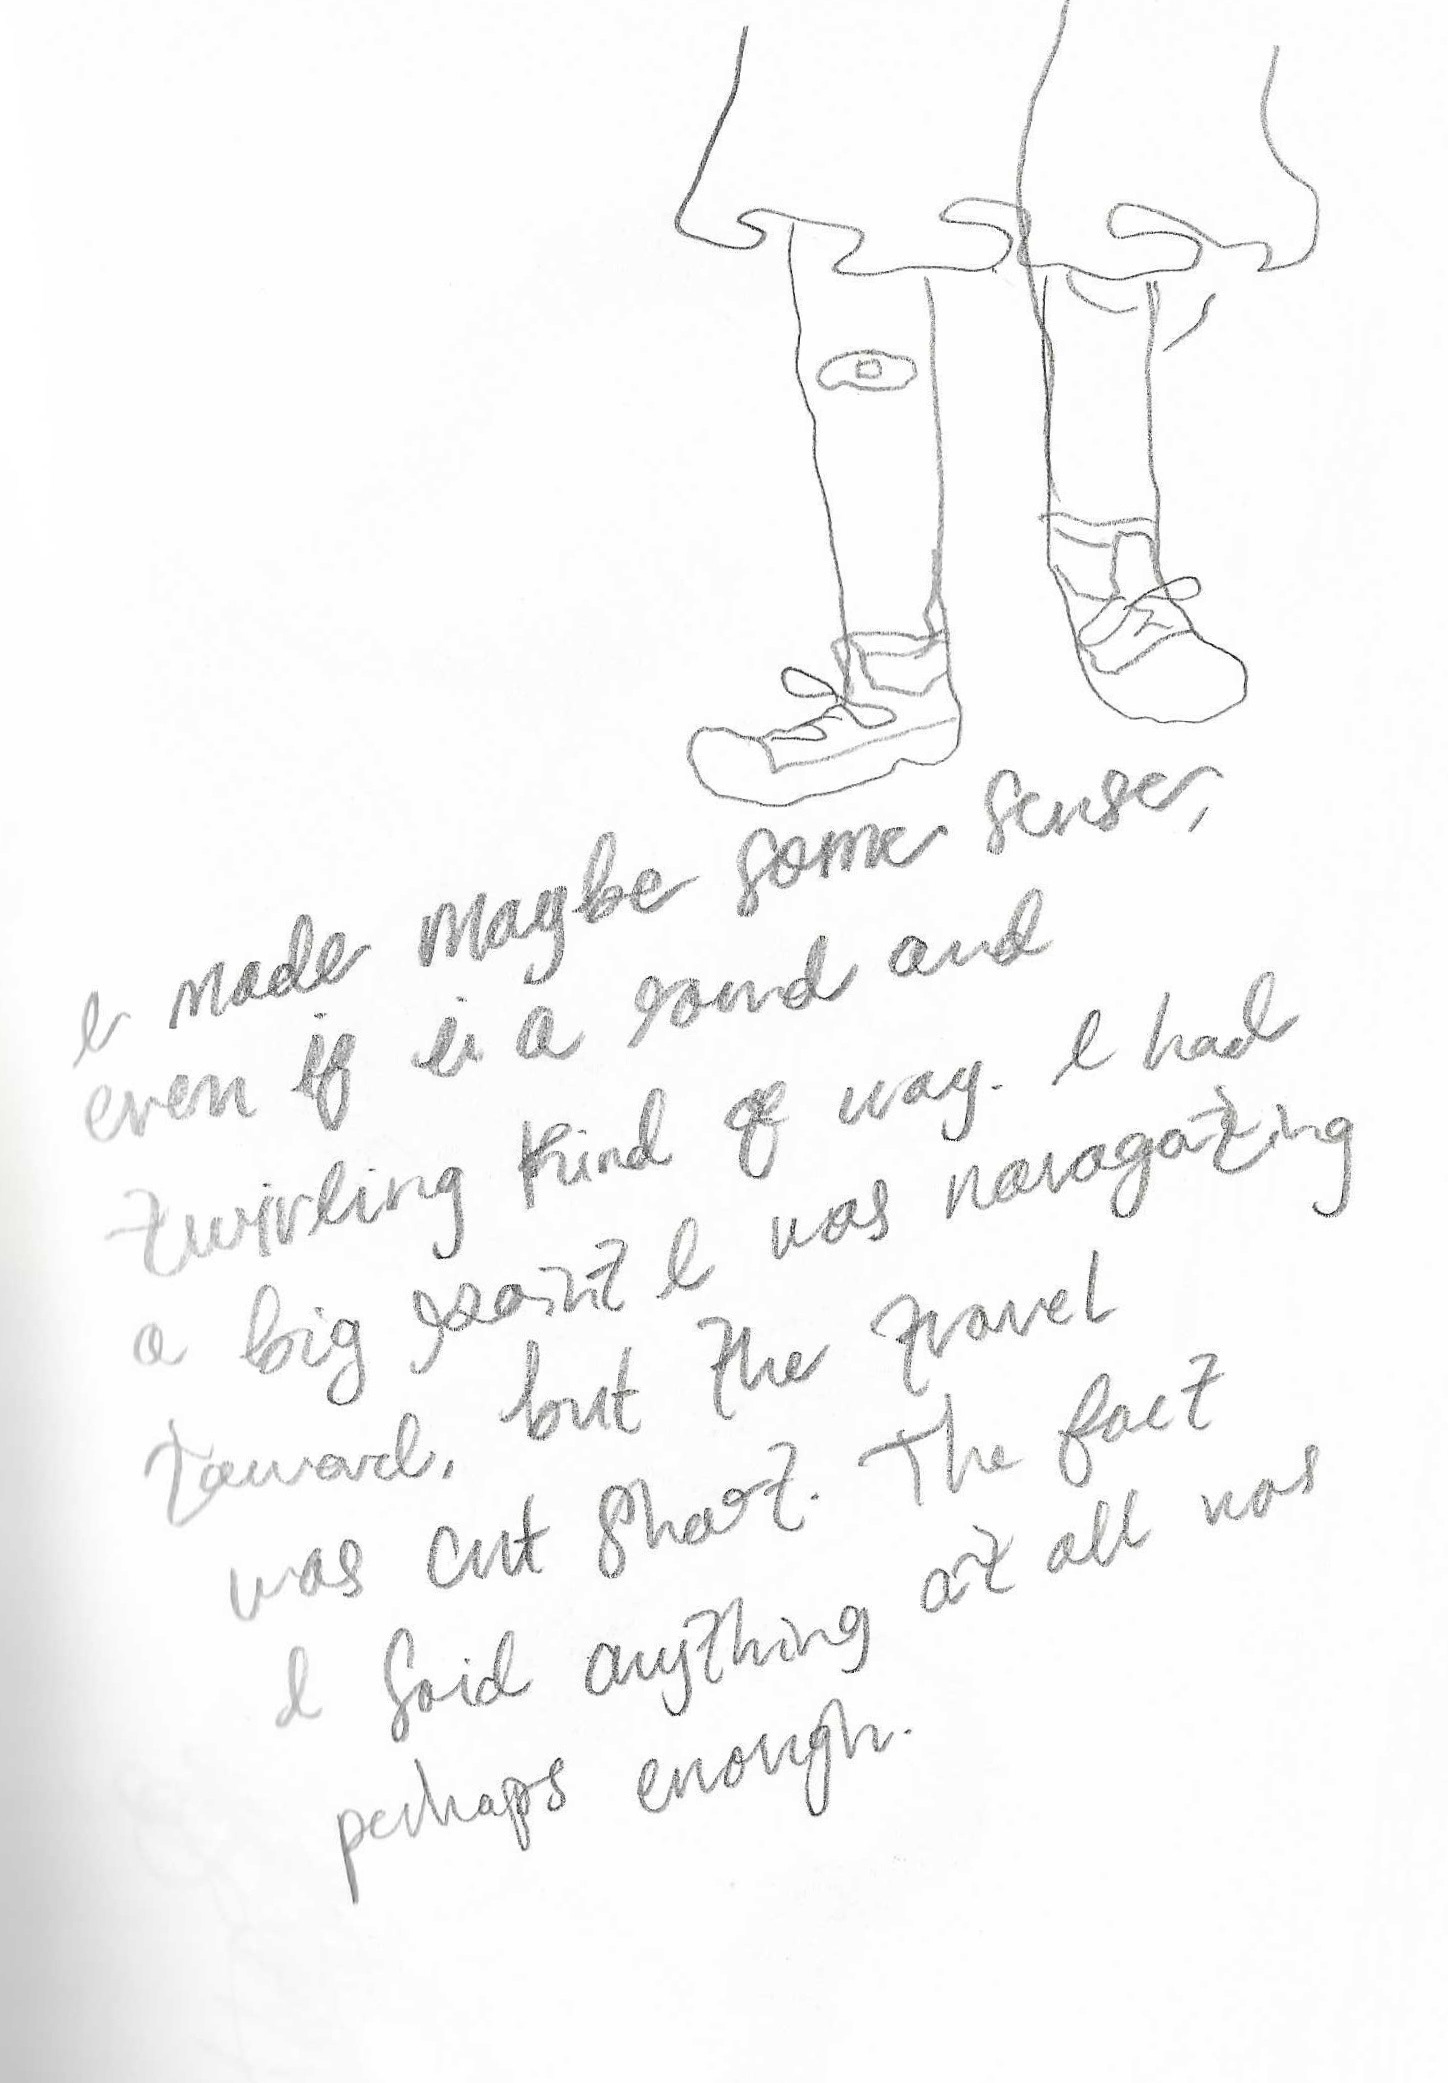 I made maybe some sense,
even if in a round and
twirling kind of way. I had
a big point I was navagating
toward, but the travel
was cut short. The fact
I said anything at all was
perhaps enough.